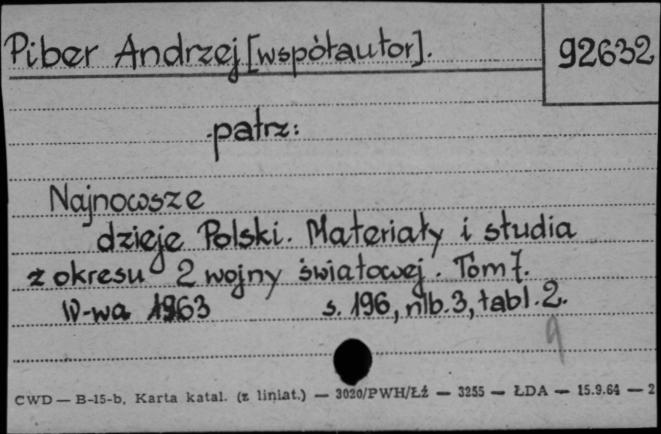 Piber Andrzej [współautor].
92632
patrz:
Najnowsze
dzieje Polski. Materiały i studia
z okresu 2 wojny światowej. Tom 7.
W-wa 1963 s. 196, nlb. 3, tabl. 2.
9
CWD — B-15-b, Karta katal. (z liniat.) — 3020/PWH/Łź — 3255 — ŁDA — 15.9.64 — 2